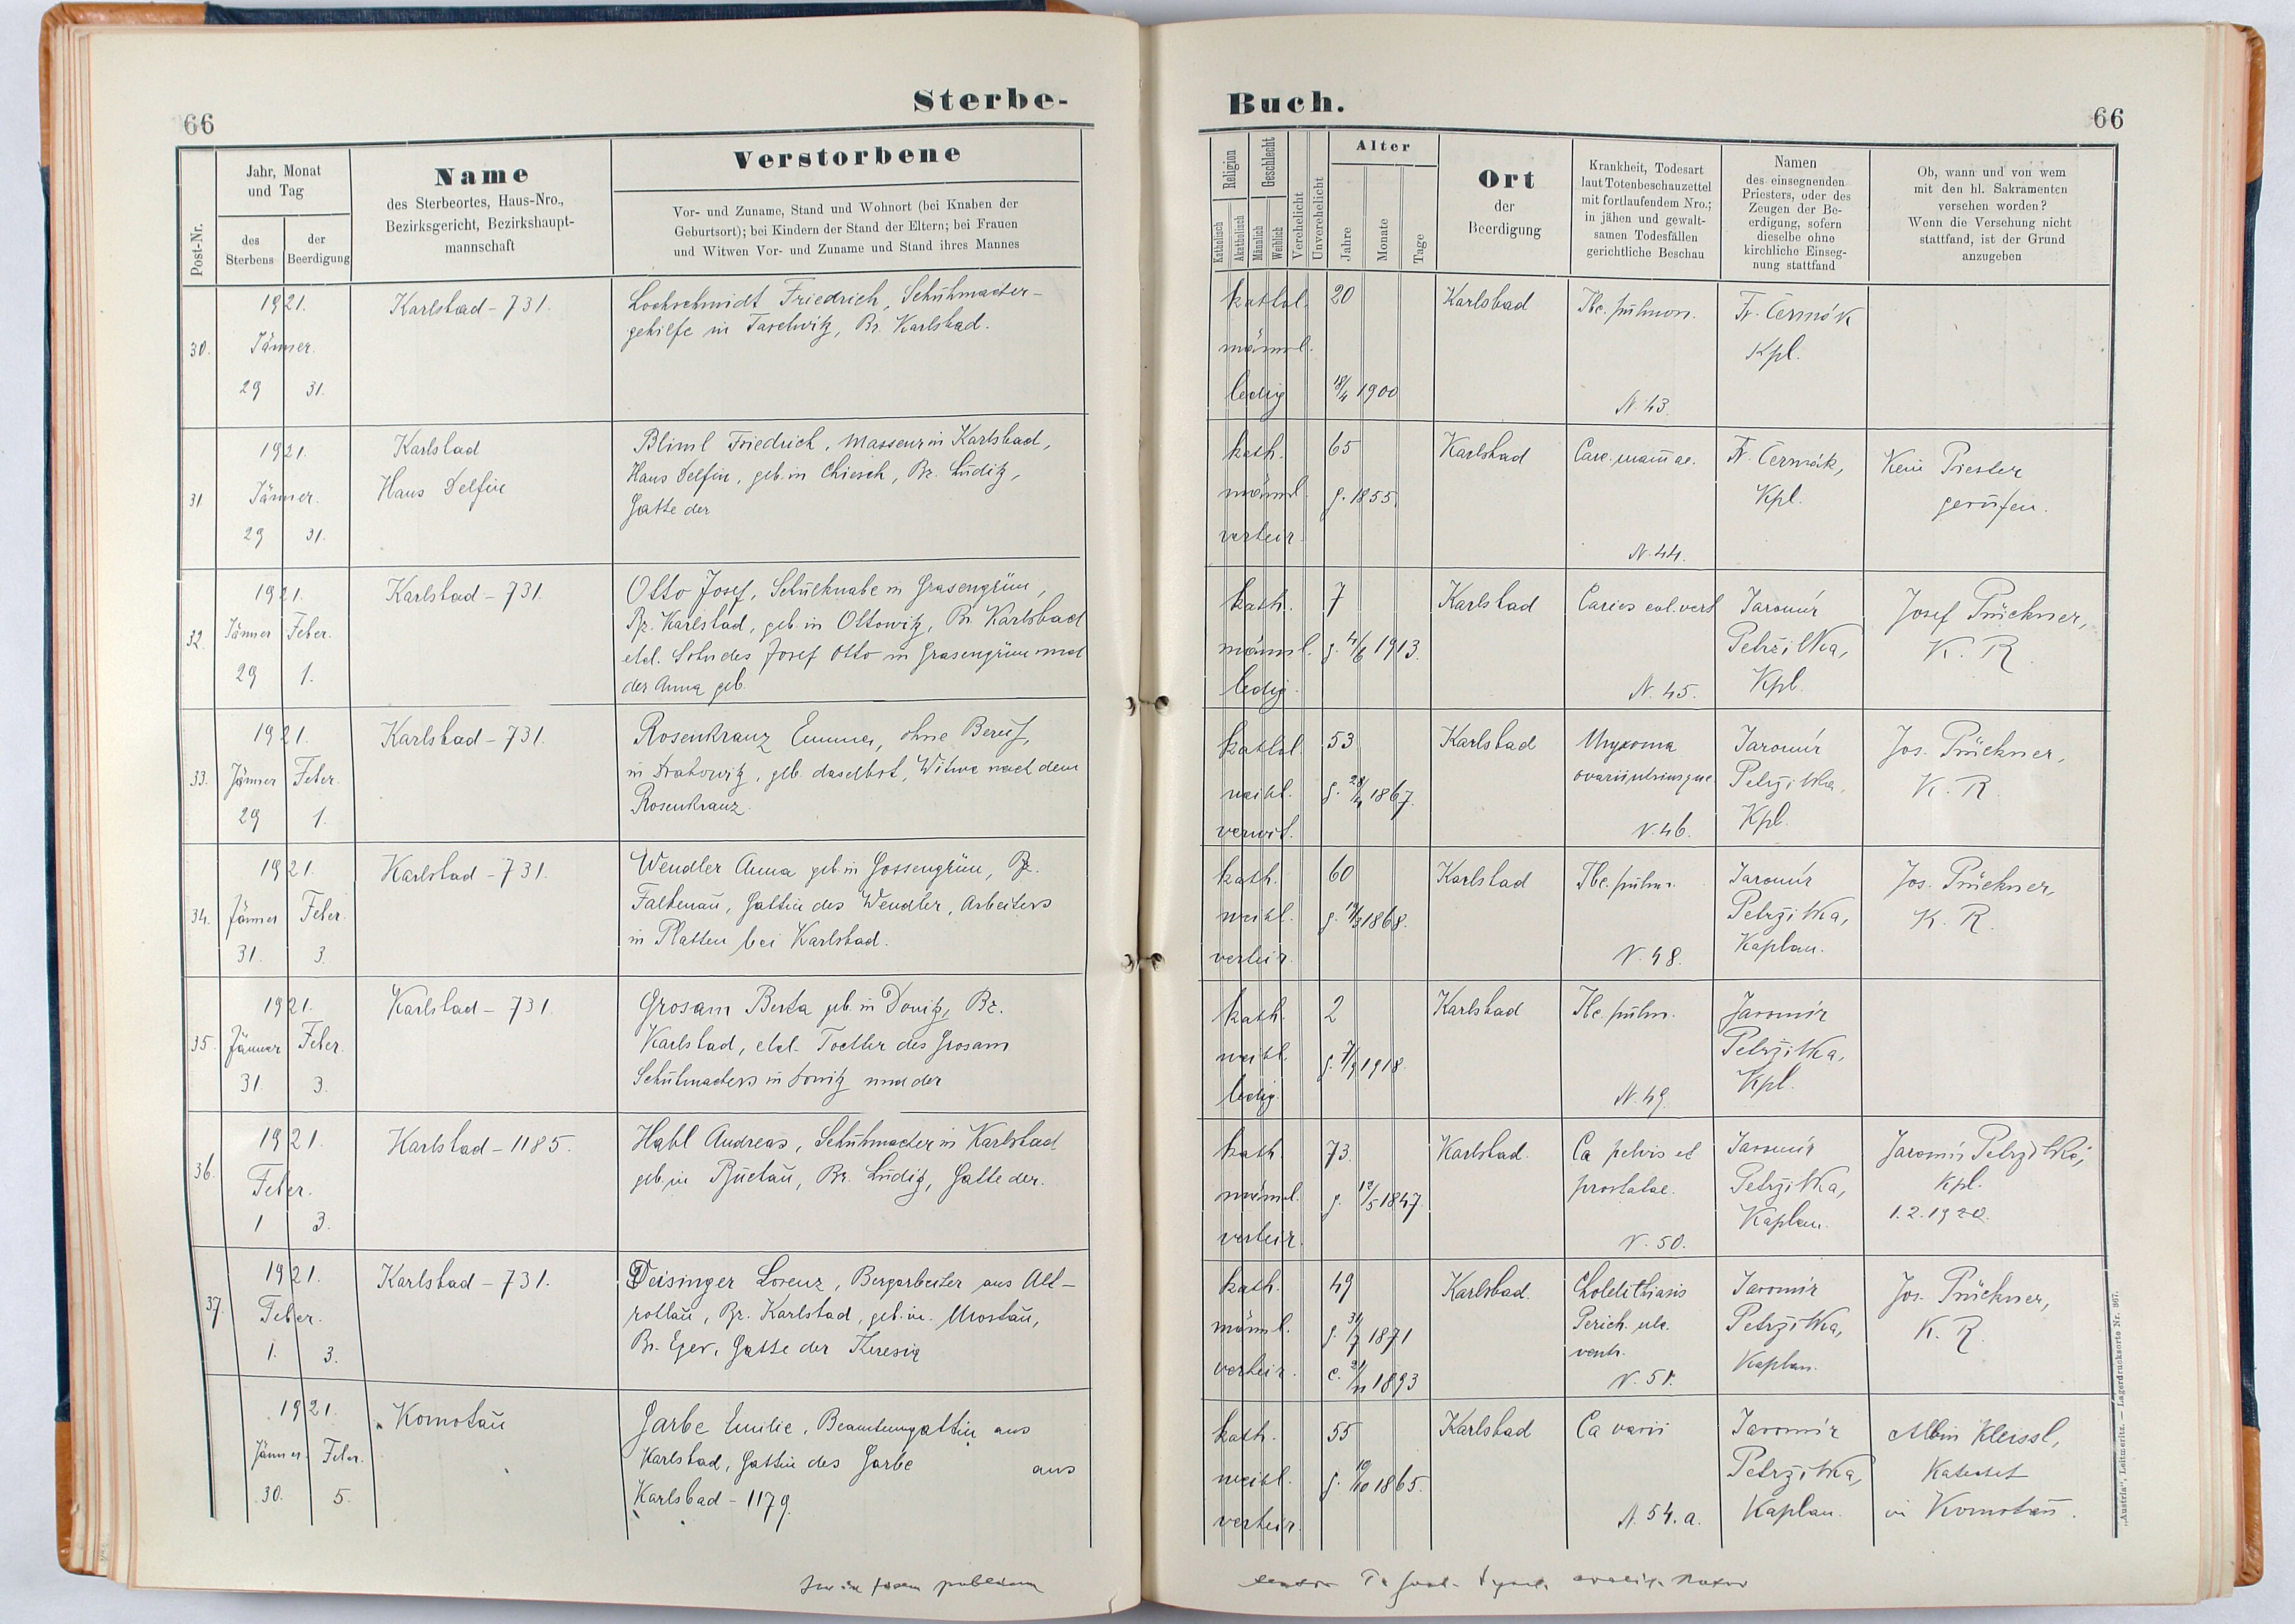 66
Sterbe-
Post-Nr.
Jahr, Monat
und Tag
des
Sterbens
der
Beerdigung
Name
des Sterbeortes, Haus-Nro.,
Bezirksgericht, Bezirkshaupt-
mannschaft
Verstorbene
Vor- und Zuname, Stand und Wohnort (bei Knaben der
Geburtsort); bei Kindern der Stand der Eltern; bei Frauen
und Witwen Vor- und Zuname und Stand ihres Mannes
30.
1921.
Jänner.
29 31.
Karlsbad - 731.
Lochschmidt Friedrich, Schuhmacher-
gehilfe in Taschwitz, Bz. Karlsbad.
31.
1921.
Jänner.
29 31.
Karlsbad
Haus Delfin
Bliml Friedrich, Masseur in Karlsbad,
Haus Delfin, geb. in Chiesch, Bz. Luditz,
Gatte der
32.
1921.
Jänner Feber.
29 1.
Karlsbad - 731.
Otto Josef, Schulknabe in Grasengrün,
Bz. Karlsbad, geb. in Ottowitz, Bz. Karlsbad
ehel. Sohn des Josef Otto in Grasengrün und
der Anna geb.
33.
1921.
Jänner Feber.
29 1.
Karlsbad - 731.
Rosenkranz Emma, ohne Beruf,
in Drahowitz, geb. daselbst, Witwe nach dem
Rosenkranz.
34.
1921.
Jänner Feber.
31. 3.
Karlsbad - 731.
Wendler Anna geb. in Gossengrün, Bz.
Falkenau, Gattin des Wendler, Arbeiters
in Platten bei Karlsbad.
35.
1921.
Jänner Feber.
31. 3.
Karlsbad - 731.
Grosam Berta geb. in Donitz, Bz.
Karlsbad, ehel. Tochter des Grosam
Schuhmachers in Donitz und der
36.
1921.
Feber.
1 3.
Karlsbad - 1185.
Habl Andreas, Schuhmacher in Karlsbad
geb. in Buchau, Bz. Luditz, Gatte der.
37.
1921.
Feber.
1. 3.
Karlsbad - 731.
Deisinger Lorenz, Bergarbeiter aus Alt-
rohlau, Bz. Karlsbad, geb. in Mostau,
Bz. Eger, Gatte der Theresia
1921.
Jänner Feber.
30. 5.
Komotau
Garbe Emilie, Beamtensgattin aus
Karlsbad, Gattin des Garbe aus
Karlsbad - 1179.
Buch.
66
Religion
Katholisch
Akatholisch
Geschlecht
Männlich
Weiblich
Verehelicht
Unverehelicht
Alter
Jahre
Monate
Tage
Ort
der
Beerdigung
Krankheit, Todesart
laut Totenbeschauzettel
mit fortlaufendem Nro.;
in jähen und gewalt-
samen Todesfällen
gerichtliche Beschau
Namen
des einsegnenden
Priesters, oder des
Zeugen der Be-
erdigung, sofern
dieselbe ohne
kirchliche Einseg-
nung stattfand
Ob, wann und von wem
mit den hl. Sakramenten
versehen worden?
Wenn die Versehung nicht
stattfand, ist der Grund
anzugeben
kathol.
männl.
ledig
20
18/4 1900
Karlsbad
Tbc. pulmon.
N. 43.
Fr. Čermák
Kpl.
kath.
männl.
verheir.
65
g. 1855.
Karlsbad
Carc. mammae.
N. 44.
Fr. Čermák,
Kpl.
Kein Priester
gerufen.
kath.
männl.
ledig.
7
g. 4/6 1913.
Karlsbad
Caries col. vert
N. 45.
Jaromír
Petržilka,
Kpl.
Josef Prückner,
K. R.
kathol.
weibl.
verwit.
53
1867.
Karlsbad
Myxoma
ovarii utriusque
N. 46.
Jaromír
Petržilka,
Kpl.
Jos. Prückner,
K. R.
kath.
weibl.
verheir.
60
1868.
Karlsbad
Tbc. pulm.
N. 48.
Jaromír
Petržilka,
Kaplan.
Jos. Prückner,
K. R.
kath.
weibl.
ledig.
2
g. 7/9 1918.
Karlsbad
Tbc. pulm.
N. 49.
Jaromír
Petržilka,
Kpl.
kath.
männl.
verheir.
73.
g. 12/5 1847.
Karlsbad.
Ca pelvis et
prostatae.
N. 50.
Jaromír
Petržilka,
Kaplan.
Jaromír Petržilka,
Kpl.
1.2.1920.
kath.
männl.
verheir.
49
g. 31/7 1871
c. 21/11 1893
Karlsbad.
Cholelithiasis
Perich. ulc.
ventr.
N. 51.
Jaromír
Petržilka,
Kaplan.
Jos. Prückner,
K. R.
kath.
weibl.
verheir.
55
g. 19/10 1865.
Karlsbad
Ca varii
N. 54. a.
Jaromír
Petržilka,
Kaplan.
Albin Kleissl,
Katechet
in Komotau.
„Austria“, Leitmeritz. — Lagerdrucksorte Nr. 867.